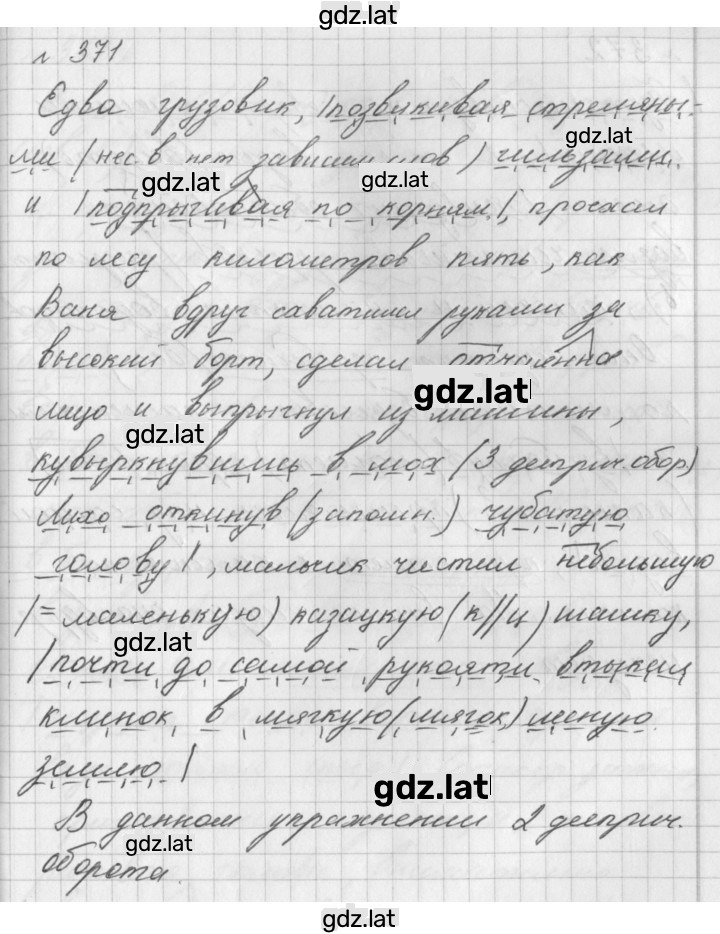 gdz.lat
№ 371
Едва грузовик, |позвякивая стреляны-
gdz.lat
ми (нес.в нет зависим. слов) гильзами
gdz.lat gdz.lat
и |подпрыгивая по корням|, проехал
по лесу километров пять, как
Ваня вдруг схватился руками за
высокий борт, сделал отчаянное
gdz.lat
лицо и выпрыгнул из машины,
gdz.lat
кувыркнувшись в мох (3 дееприч. обор)
Лихо откинув (запомн.) чубатую
голову|, мальчик чистил небольшую
(=маленькую) казацкую (к//ц) шашку,
gdz.lat
|почти до самой рукояти втыкая
клинок в мягкую (мягок) лесную
землю|
gdz.lat
В данном упражнении 2 дееприч.
gdz.lat
оборота.
gdz.lat